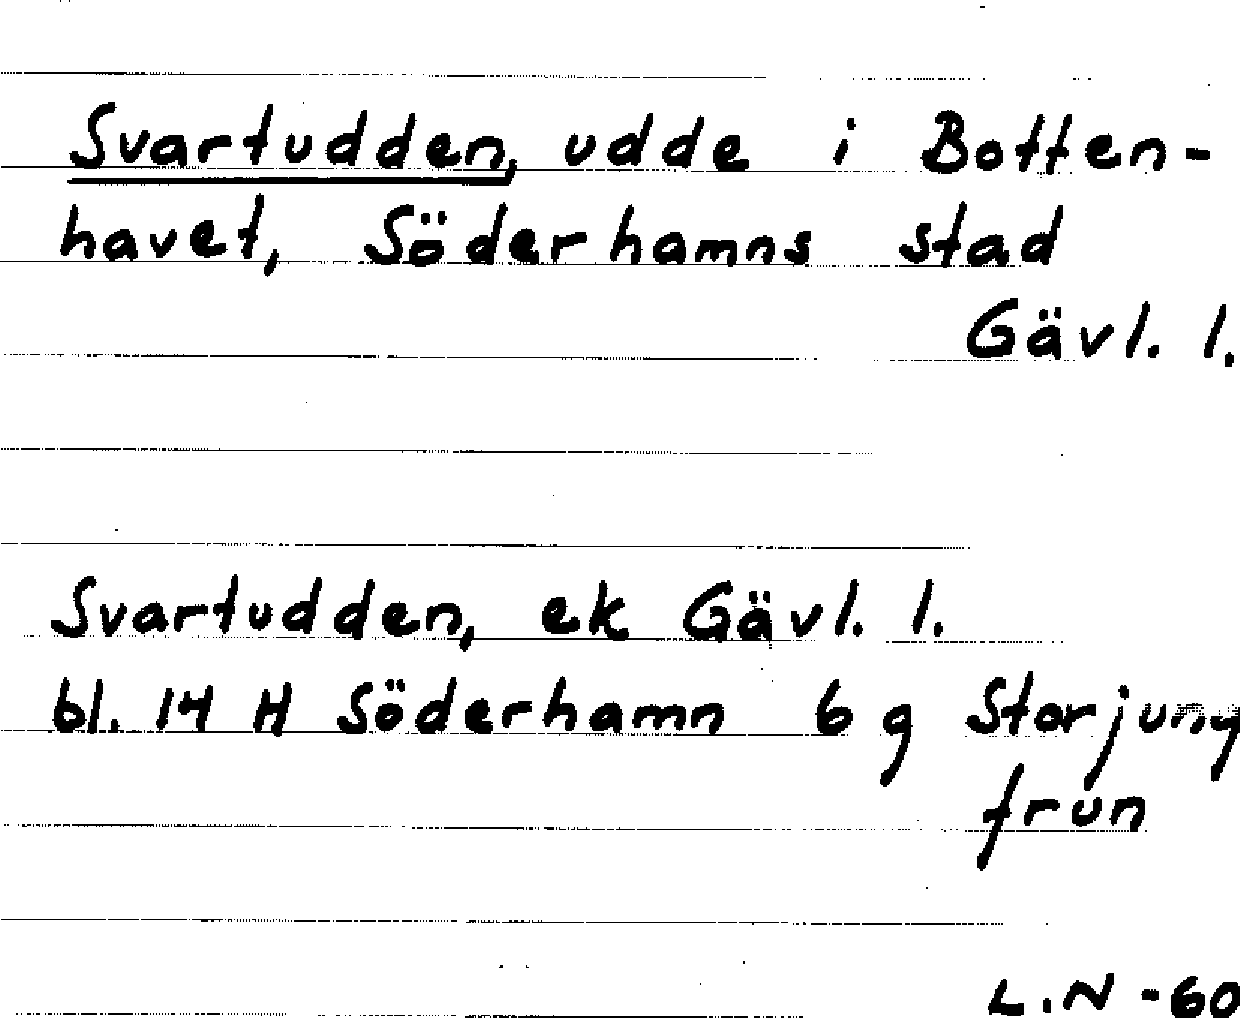 Svartudden, udde i Botten-
havet, Söderhamns stad
Gävl. l.
Svartudden, ek Gävl. l.
bl. 14 H Söderhamn 6 g Storjung
frun
L.N -60